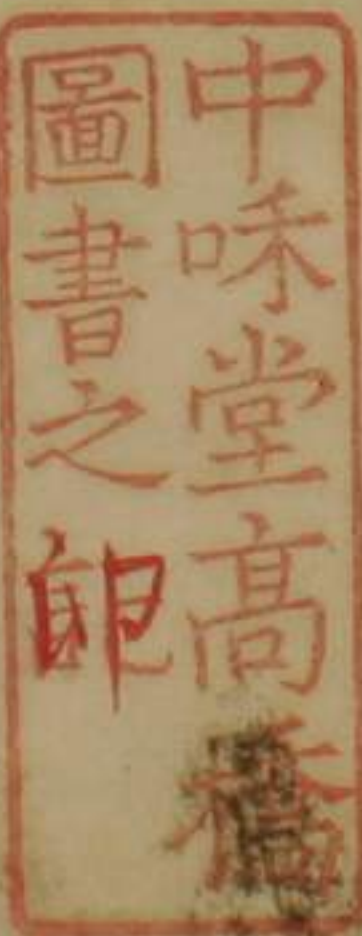 中咊堂高橋
圖書之印